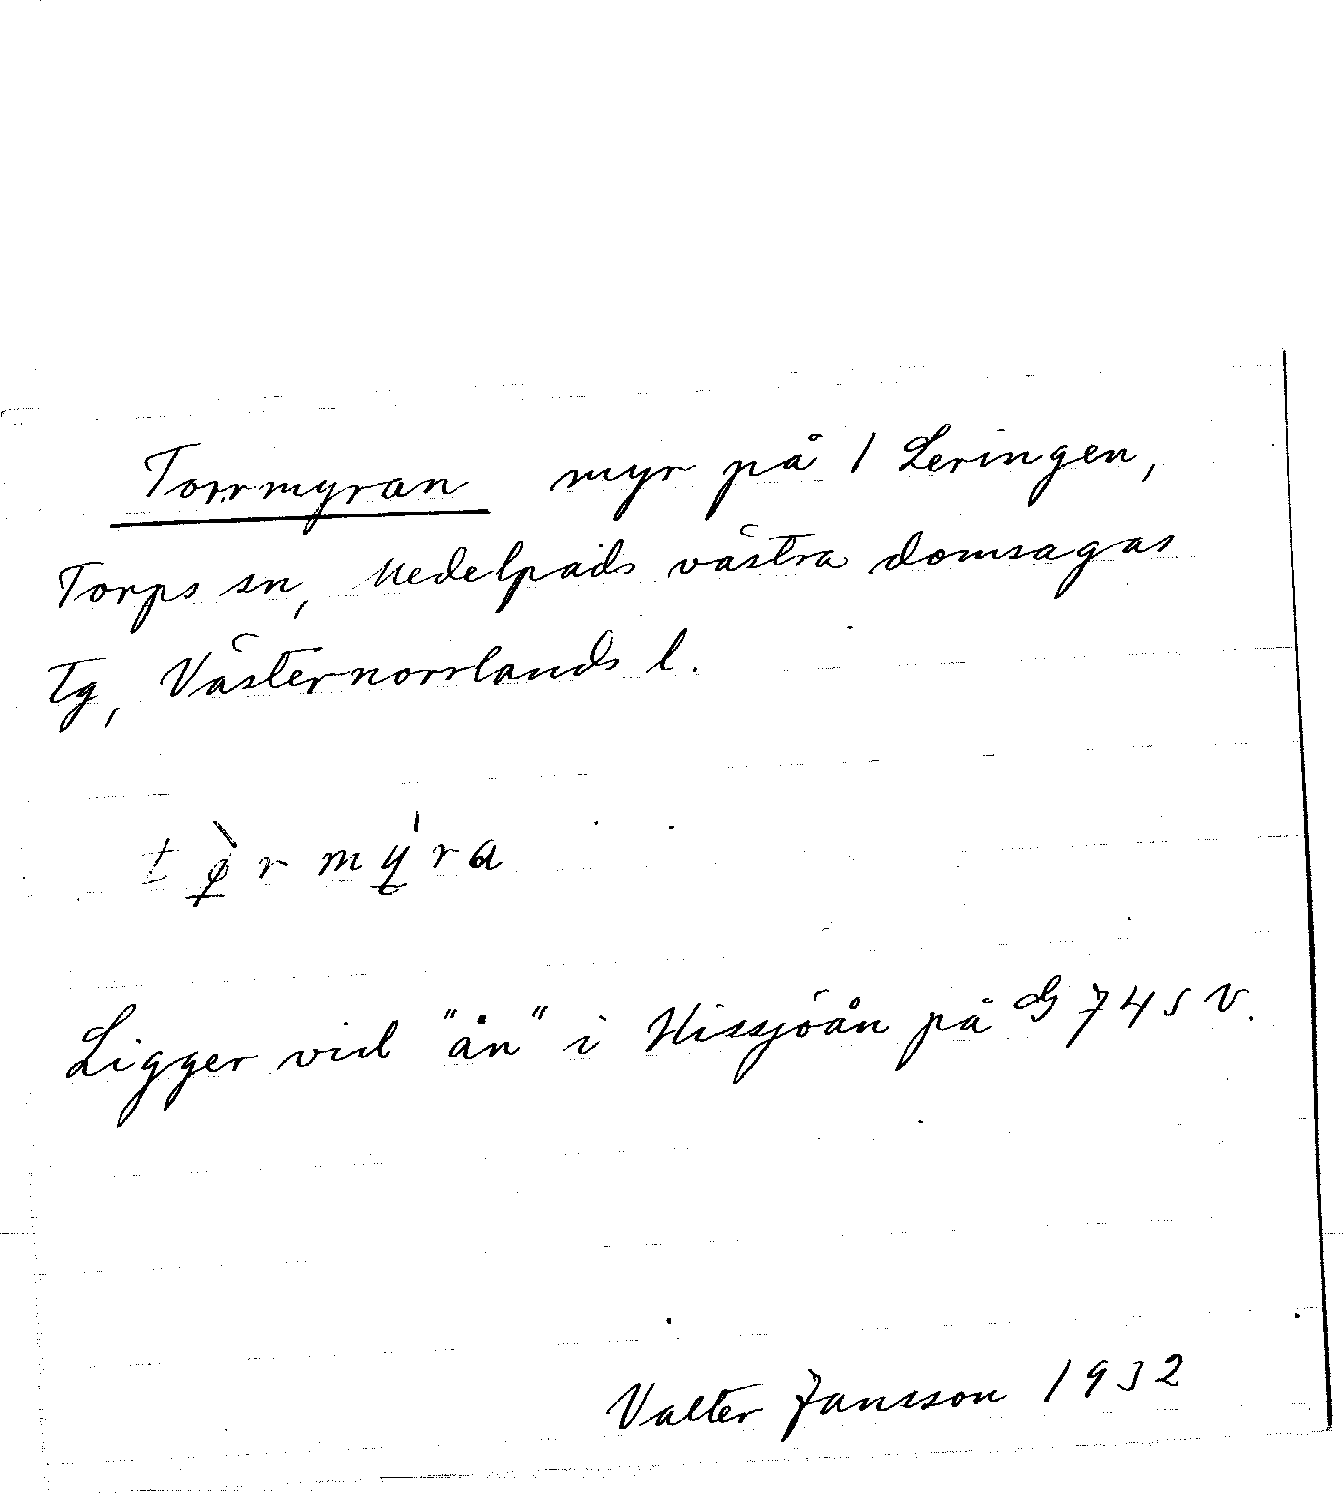 Torrmyran myr på 1 Leringen,
Torps sn, Medelpads västra domsagas
tg, Västernorrlands l.
tø̀rmy�́ra
Ligger vid "ån" i Hissjöån på G 74 SV.
Valter Jansson 1932